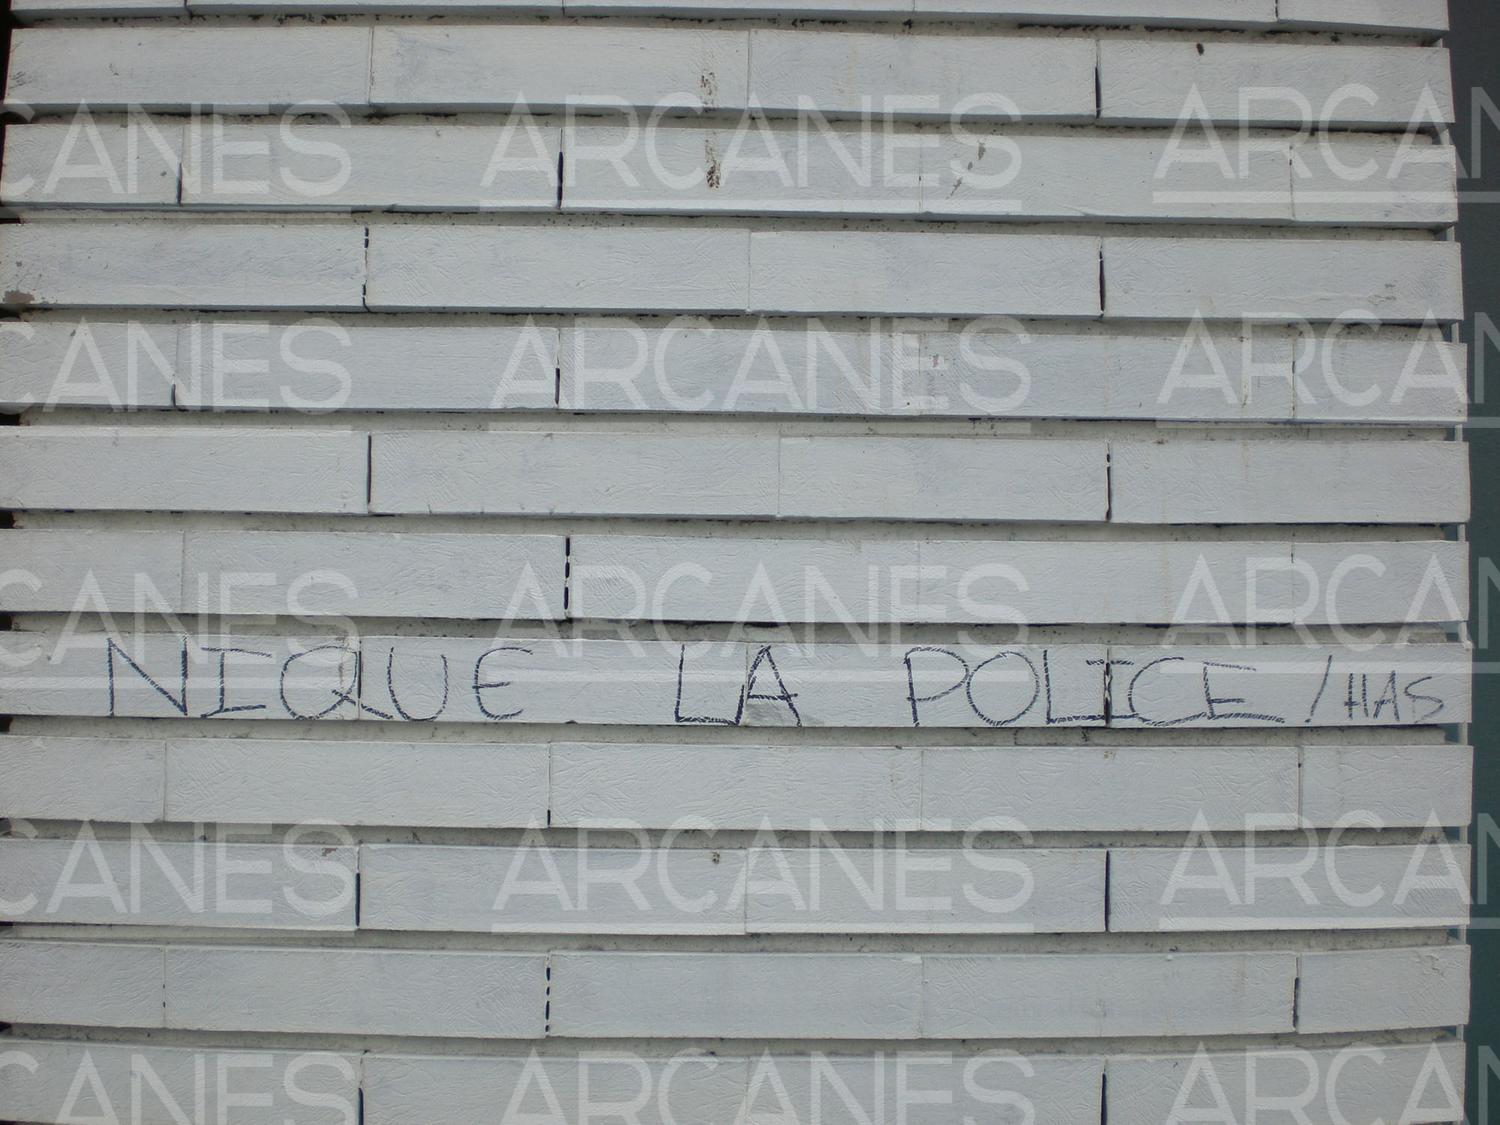 CANES ARCANES ARCAN
CANES ARCANES ARCA
CANES ARCANES ARCAN
NIQUE LA POLICE / HAS
CANES ARCANES ARCAN
CANES ARCANES ARCAN